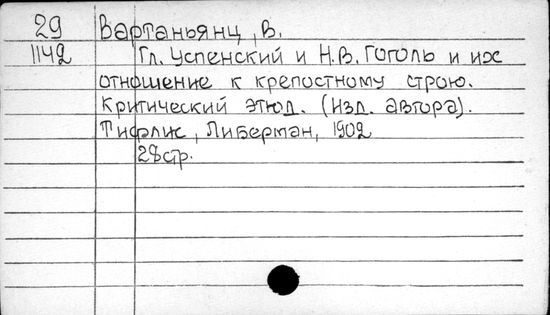 29 Вартаньянц, В.
1142 Гл. Успенский и Н.В. Гоголь и их
отношение к крепостному строю.
Критический этюд. (Изд. автора).
Тифлис, Либерман, 1902
28стр.